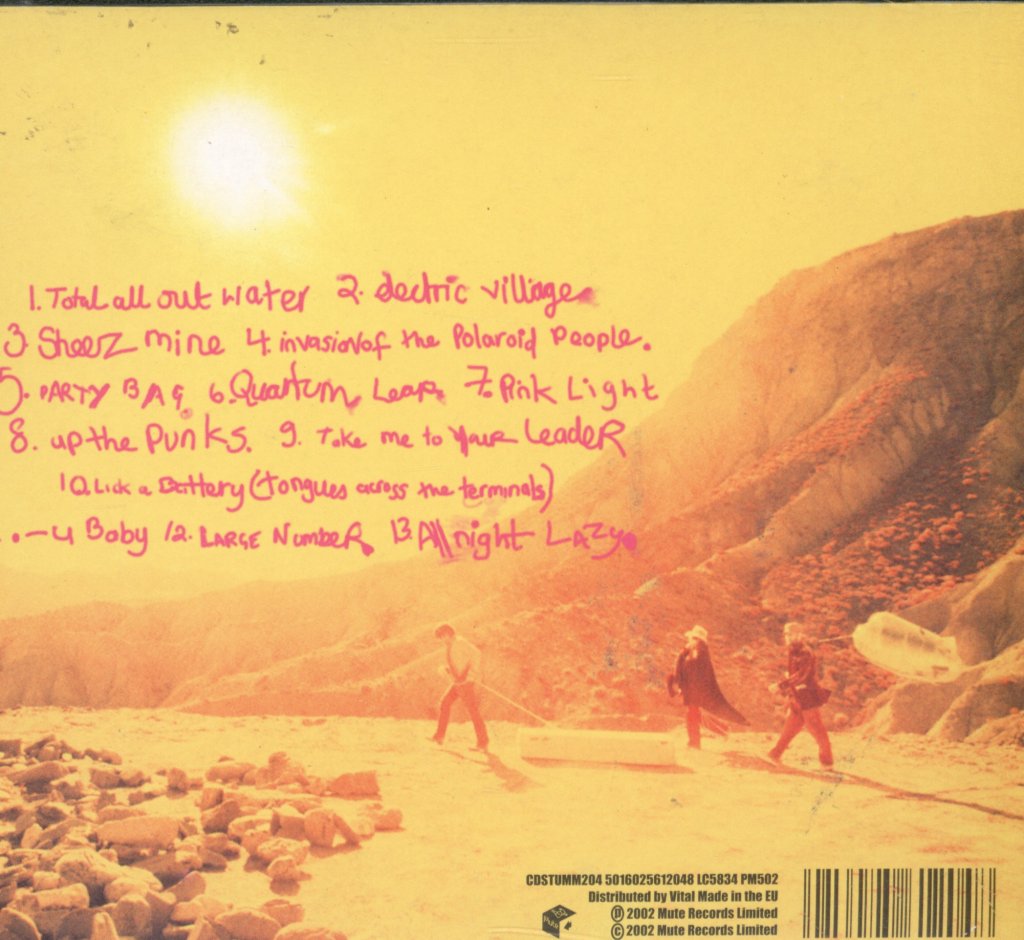 1. Total all out water 2. electric village
3 Sheez mine 4. invasion of the Polaroid People.
5. PARTY BAG 6. Quantum Leap 7. Pink Light
8. up the Punks. 9. Take me to Your LeadeR
10. Lick a Battery (tongues across the terminals)
..-4 Baby 12. LARGE NumbeR 13. All night LAZy
CDSTUMM204 5016025612048 LC5834 PM502
Distributed by Vital Made in the EU
℗ 2002 Mute Records Limited
© 2002 Mute Records Limited